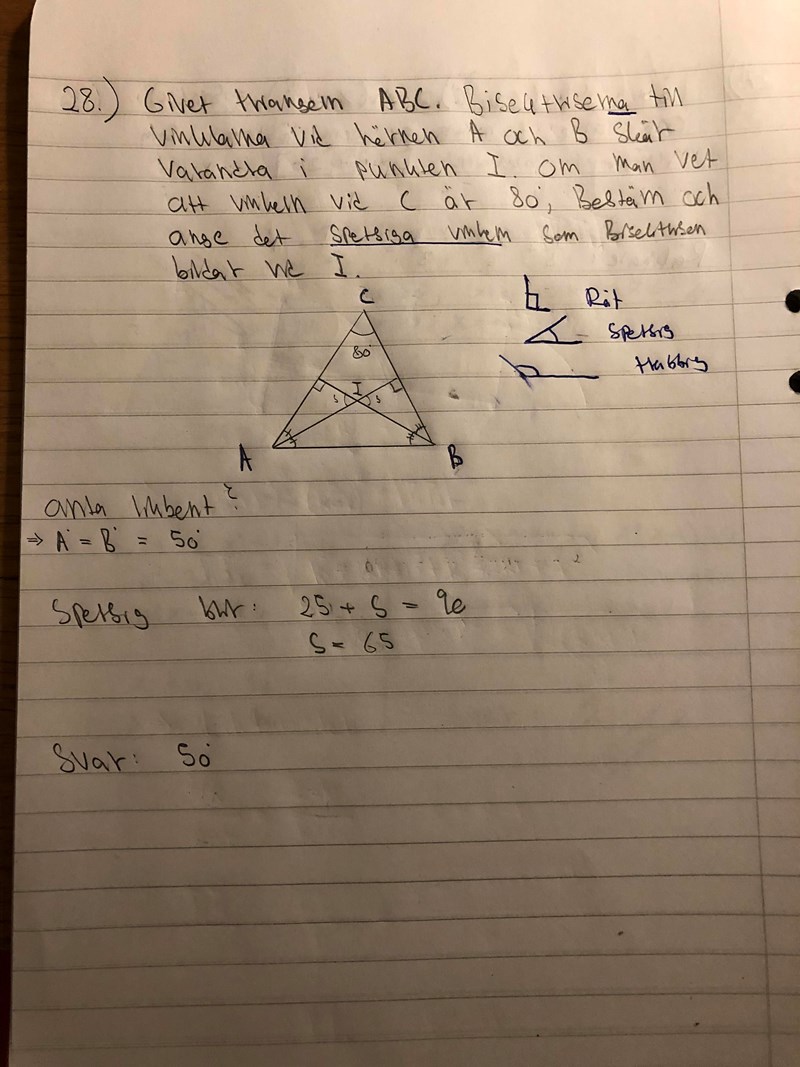 28.) Givet triangeln ABC. Bisektriserna till
vinklarna vid hörnen A och B skär
varandra i punkten I. om man vet
att vinkeln vid C är 80°, Bestäm och
ange det spetsiga vinkeln som Bisektrisen
bildar vid I.
C
Rät
80°
spetsig
trubbig
I
s s
A B
anta likbent?
⇒ A° = B° = 50°
Spetsig blir: 25 + S = 90
S = 65
Svar: 50°